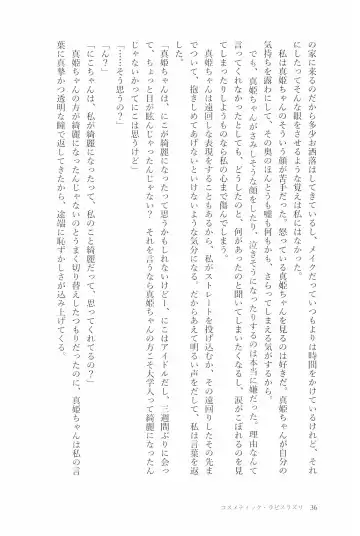 の家に来るのだから多少お洒落はしてきているし、メイクだっていつもよりは時間をかけているけれど、それ
にしたってそんな眼をさせるような覚えは私にはなかった。
　私は真姫ちゃんのそういう顔が苦手だった。怒っている真姫ちゃんを見るのは好きだ。真姫ちゃんが自分の
気持ちを露わにして、その奥のほんとうも嘘も何もかも、さらってしまえる気がするから。
　でも、真姫ちゃんがさみしそうな顔をしたり、泣きそうになったりするのは本当に嫌だった。理由なんて
言ってくれなかったとしても、どうしたのと、何があったのと聞いてしまいたくなるし、涙がこぼれるのを見
てしまったりしようものなら私の心まで傷んでしまう。
　真姫ちゃんは遠回しな表現をすることもあるから、私がストレートを投げ込むか、その遠回りしたその先ま
でついて、抱きしめてあげないといけないような気分になる。だからあえて明るい声をだして、私は言葉を返
した。
「真姫ちゃんは、にこが綺麗になったって思うかもしれないけどー、にこはアイドルだし、三週間ぶりに会っ
て、ちょっと目が眩んじゃったんじゃない？　それを言うなら真姫ちゃんの方こそ大学入って綺麗になったん
じゃないかってにこは思うけど」
「……そう思うの？」
「ん？」
「にこちゃんは、私が綺麗になったって、私のこと綺麗だって、思ってくれてるの？」
　真姫ちゃんの方が綺麗になったんじゃないのとうまく切り替えしたつもりだったのに、真姫ちゃんは私の言
葉に真摯かつ透明な瞳で返してきたから、途端に恥ずかしさが込み上げてくる。
コスメティック・ラピスラズリ　36